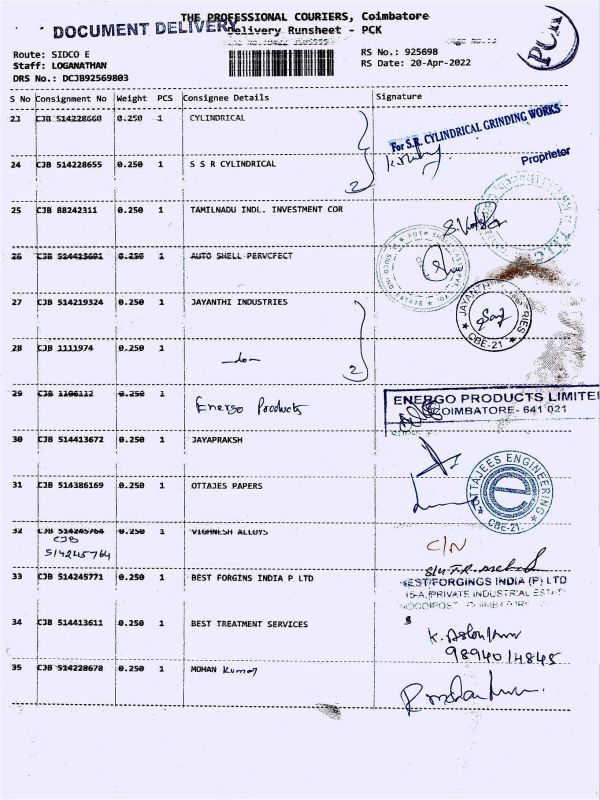 THE PROFESSIONAL COURIERS, Coimbatore
DOCUMENT DELIVERY
Delivery Runsheet - PCK
PCK
Route: SIDCO E
RS No.: 925698
Staff: LOGANATHAN
RS Date: 20-Apr-2022
DRS No.: DCJB92569803
S No Consignment No Weight PCS Consignee Details Signature
23 CJB 514228660 0.250 1 CYLINDRICAL
For S.R. CYLINDRICAL GRINDING WORKS
Proprietor
24 CJB 514228655 0.250 1 S S R CYLINDRICAL
2
25 CJB 88242311 0.250 1 TAMILNADU INDL. INVESTMENT COR
26 CJB 514413691 0.250 1 AUTO SHELL PERVCFECT
27 CJB 514219324 0.250 1 JAYANTHI INDUSTRIES
JAYANTHI INDUSTRIES
CBE-21
28 CJB 1111974 0.250 1 -do-
2
29 CJB 1106112 0.250 1 Energo Products
ENERGO PRODUCTS LIMITE
COIMBATORE- 641 021
30 CJB 514413672 0.250 1 JAYAPRAKSH
31 CJB 514386169 0.250 1 OTTAJES PAPERS
OTTAJEES ENGINEERING
CBE-21.
32 CJB 514245764 0.250 1 VIGHNESH ALLOYS
CJB
514245764
C/N
33 CJB 514245771 0.250 1 BEST FORGINS INDIA P LTD
BEST FORGINGS INDIA (P) LTD
15-A, PRIVATE INDUSTRIAL ESTATE
34 CJB 514413611 0.250 1 BEST TREATMENT SERVICES
98940 14845
35 CJB 514228678 0.250 1 MOHAN Kumar